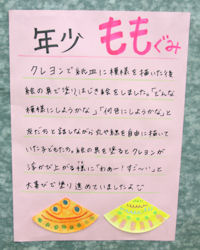 年少 ももぐみ
クレヨンで紙皿に模様を描いた後
絵の具で塗りはじき絵をしました。「どんな
模様にしようかな」「何色にしようかな」と
友だちと話しながら丸や線を自由に描いて
いた子どもたち。絵の具を塗るとクレヨンが
浮かび上がる様に「わあー！すごーい」と
大喜びで塗り進めていましたよ